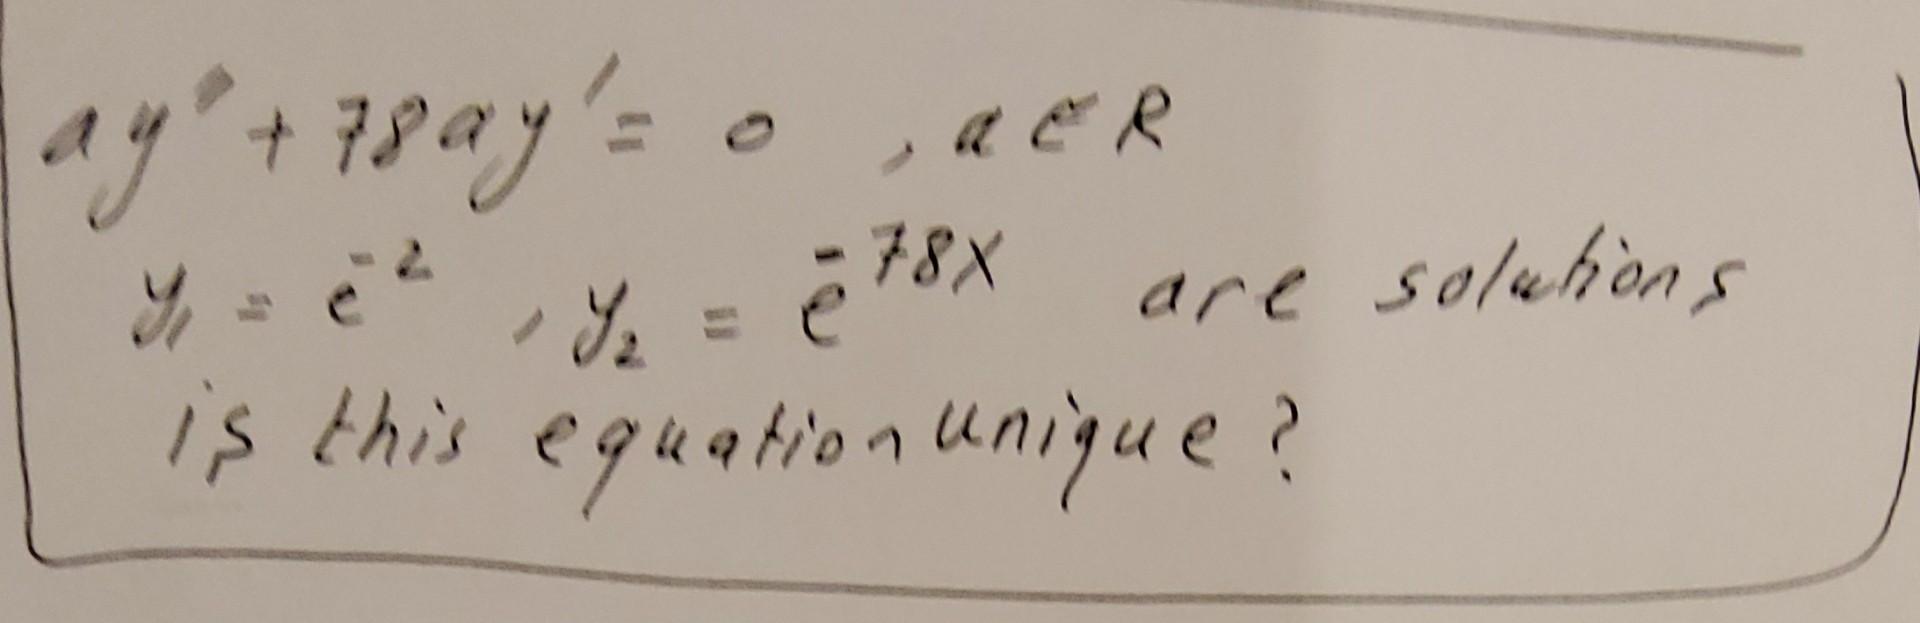 ay" + 78ay' = 0 , a ∈ R
y₁ = e⁻² , y₂ = e⁻⁷⁸ˣ are solutions
is this equation unique?